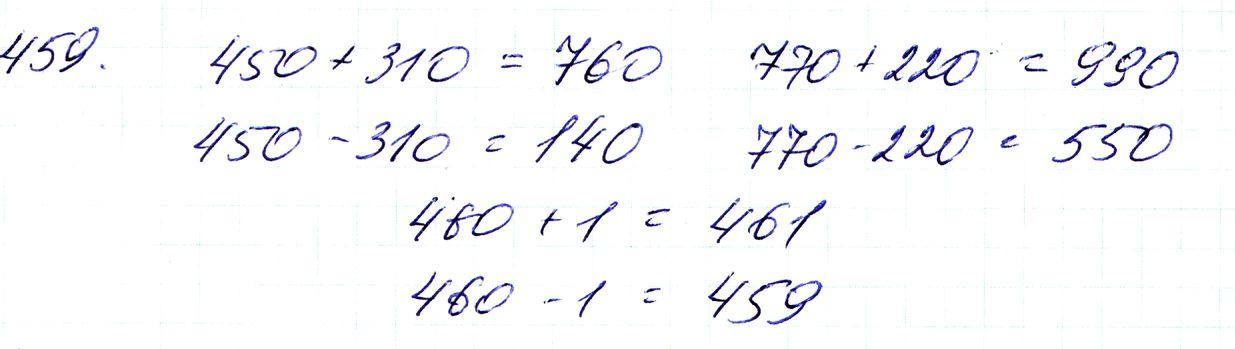 459. 450 + 310 = 760 770 + 220 = 990
450 - 310 = 140 770 - 220 = 550
460 + 1 = 461
460 - 1 = 459